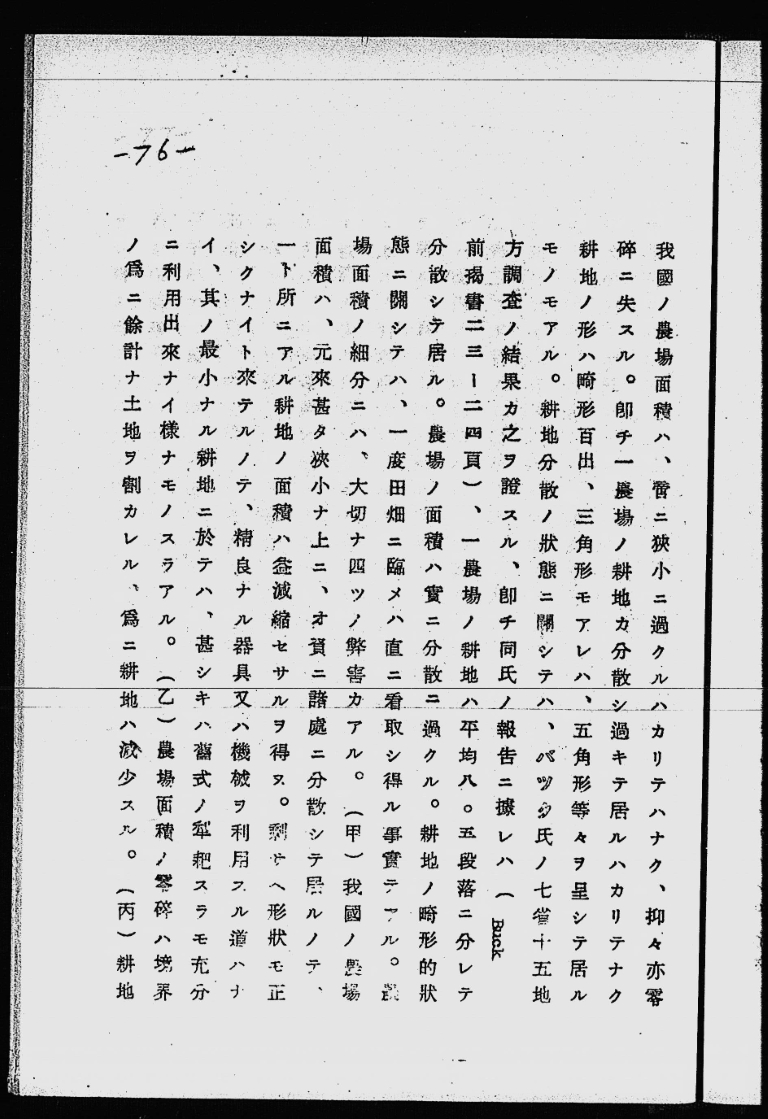 -76-
我國ノ農場面積ハ、啻ニ狹小ニ過クルハカリテハナク、抑々亦零
碎ニ失スル。卽チ一農場ノ耕地カ分散シ過キテ居ルハカリテナク
耕地ノ形ハ畸形百出、三角形モアレハ、五角形等々ヲ呈シテ居ル
モノモアル。耕地分散ノ狀態ニ關シテハ、バツク氏ノ七省十五地
方調査ノ結果カ之ヲ證スル、卽チ同氏ノ報告ニ據レハ(Buck
前揭書二三ー二四頁)、一農場ノ耕地ハ平均八。五段落ニ分レテ
分散シテ居ル。農場ノ面積ハ實ニ分散ニ過クル。耕地ノ畸形的狀
態ニ關シテハ、一度田畑ニ臨メハ直ニ看取シ得ル事實テアル。農
場面積ノ細分ニハ、大切ナ四ツノ弊害カアル。(甲)我國ノ農場
面積ハ、元來甚タ狹小ナ上ニ、オ負ニ諸處ニ分散シテ居ルノテ、
一ト所ニアル耕地ノ面積ハ益減縮セサルヲ得ヌ。剩サヘ形狀モ正
シクナイト來テルノテ、精良ナル器具又ハ機械ヲ利用スル道ハナ
イ、其ノ最小ナル耕地ニ於テハ、甚シキハ舊式ノ犂耙スラモ充分
ニ利用出來ナイ樣ナモノスラアル。(乙)農場面積ノ零碎ハ境界
ノ爲ニ餘計ナ土地ヲ割カレル、爲ニ耕地ハ減少スル。(丙)耕地